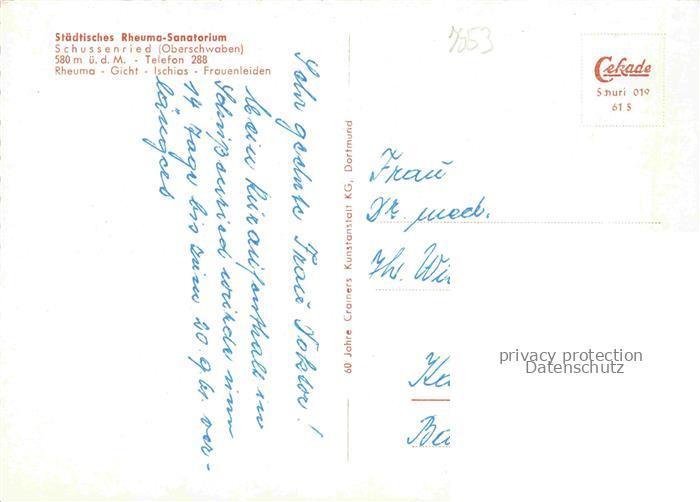 Städtisches Rheuma-Sanatorium
Schussenried (Oberschwaben)
580 m ü. d. M. - Telefon 288
Rheuma - Gicht - Ischias - Frauenleiden
Sehr geehrte Frau Doktor!
Mein Kuraufenthalt in
Schußenried wurde nun
14 Tage bis zum 20.9.61. ver-
längert
60 Jahre Cramers Kunstanstalt KG, Dortmund
7553
Cekade
Schuri 019
61 S
Frau
Dr. med.
Th. Wi
Ka
Ba
privacy protection
Datenschutz